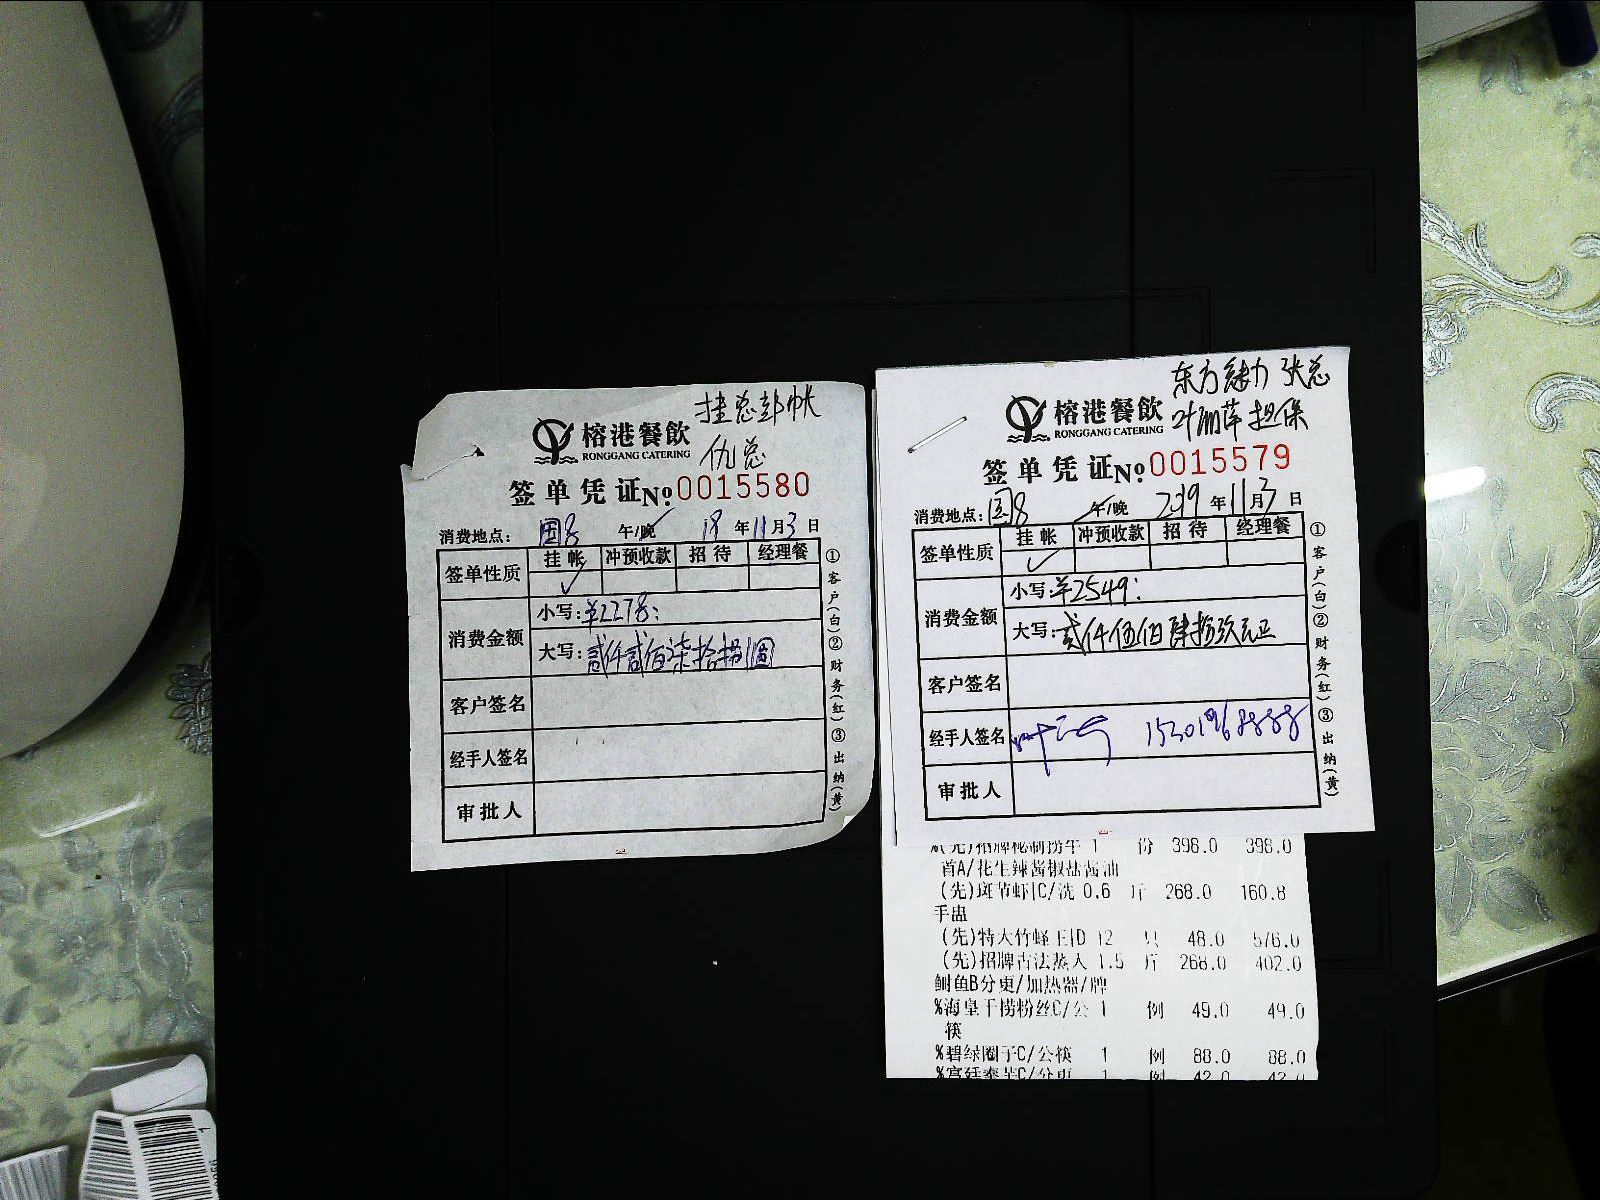 挂总部帐
仇总
榕港餐飲
RONGGANG CATERING
签单凭证 No.0015580
消费地点：国8 午/晚 18年11月3日
签单性质 挂帐 冲预收款 招待 经理餐
✓
消费金额 小写：¥2278：
大写：贰仟贰佰柒拾捌圆
客户签名
经手人签名
审批人
①客户(白)②财务(红)③出纳(黄)
东方魅力 张总
叶丽萍担保
榕港餐飲
RONGGANG CATERING
签单凭证 No.0015579
消费地点：国8 午/晚 年11月3日
签单性质 挂帐 冲预收款 招待 经理餐
✓
消费金额 小写：¥2549：
大写：贰仟伍佰肆拾玖元正
客户签名
经手人签名
审批人
①客户(白)②财务(红)③出纳(黄)
(先)招牌秘制捞牛 1 份 398.0 398.0
首A/花生辣酱椒盐酱油
(先)斑节虾|C/洗 0.6 斤 268.0 160.8
手盅
(先)特大竹蛏王|D 12 只 48.0 576.0
(先)招牌古法蒸人 1.5 斤 268.0 402.0
鲥鱼B分更/加热器/牌
%海皇干捞粉丝C/公 1 例 49.0 49.0
筷
%碧绿圈子C/公筷 1 例 88.0 88.0
1 例 42.0 42.0